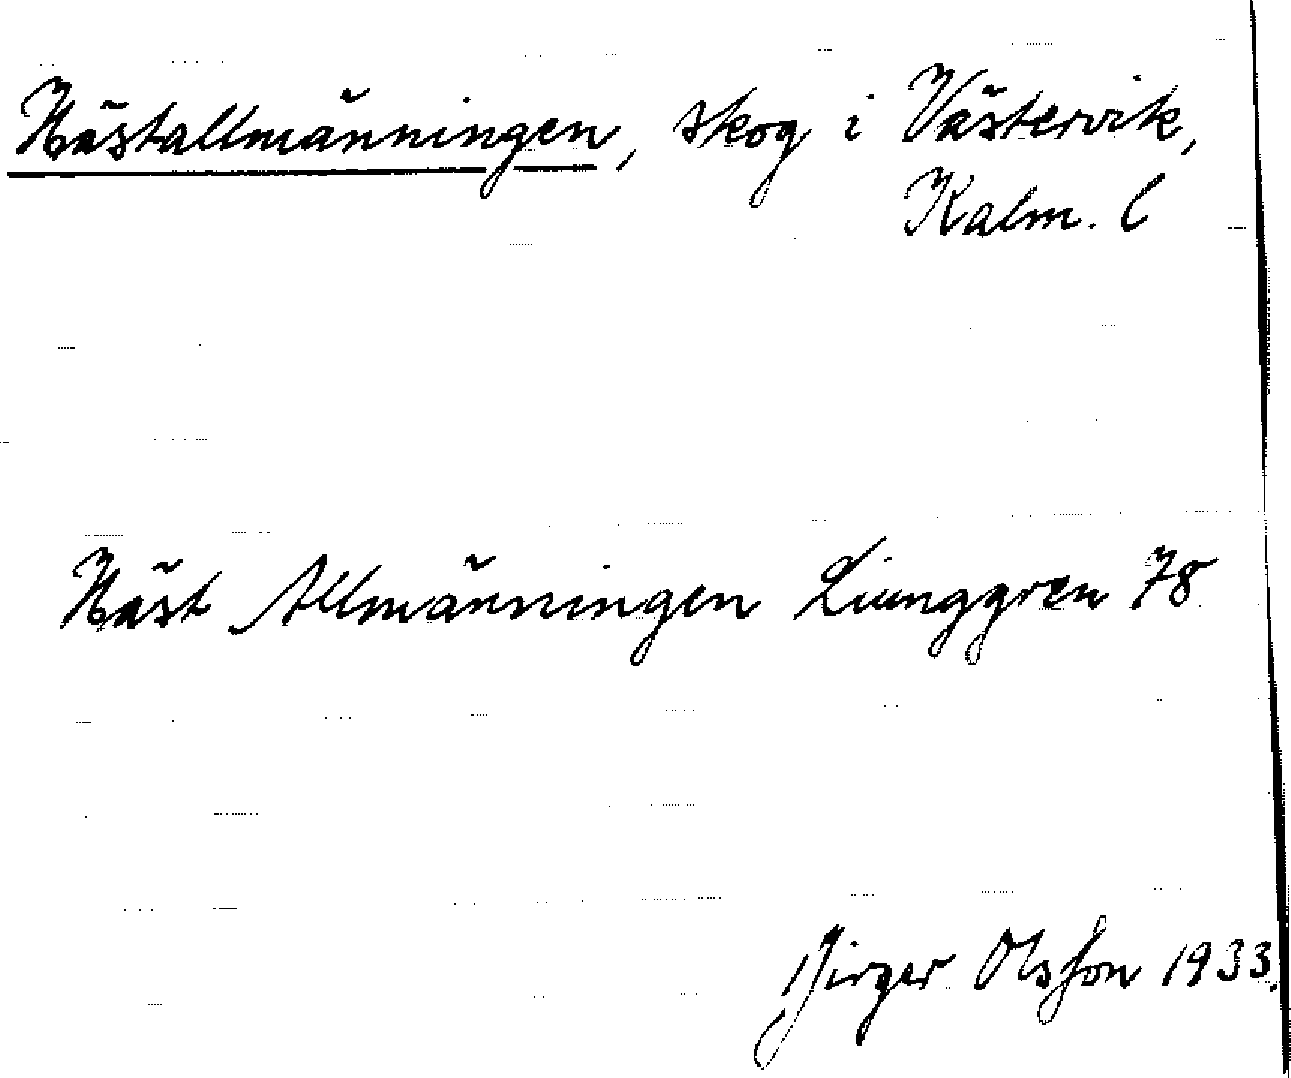 Hästallmänningen, skog i Västervik,
Kalm. l
Häst Allmänningen Liunggren 78
Birger Olsson 1933.